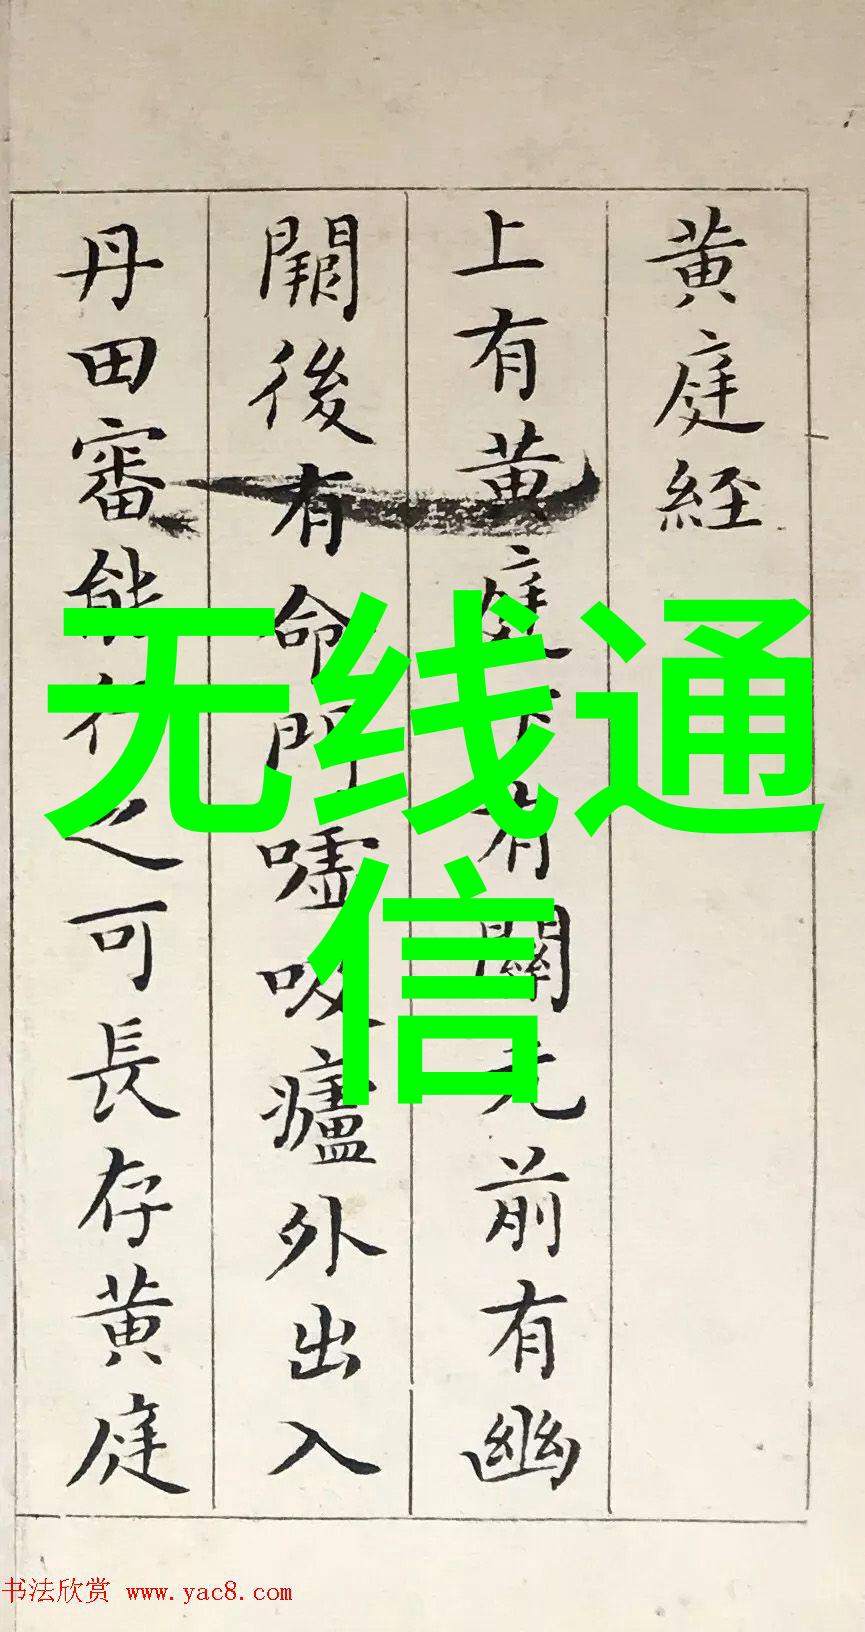 黄庭經
上有黄庭下有關元前有幽
闕後有命門嘘吸廬外出入
丹田審能行之可長存黄庭
无线通
信
书法欣赏 www.yac8.com